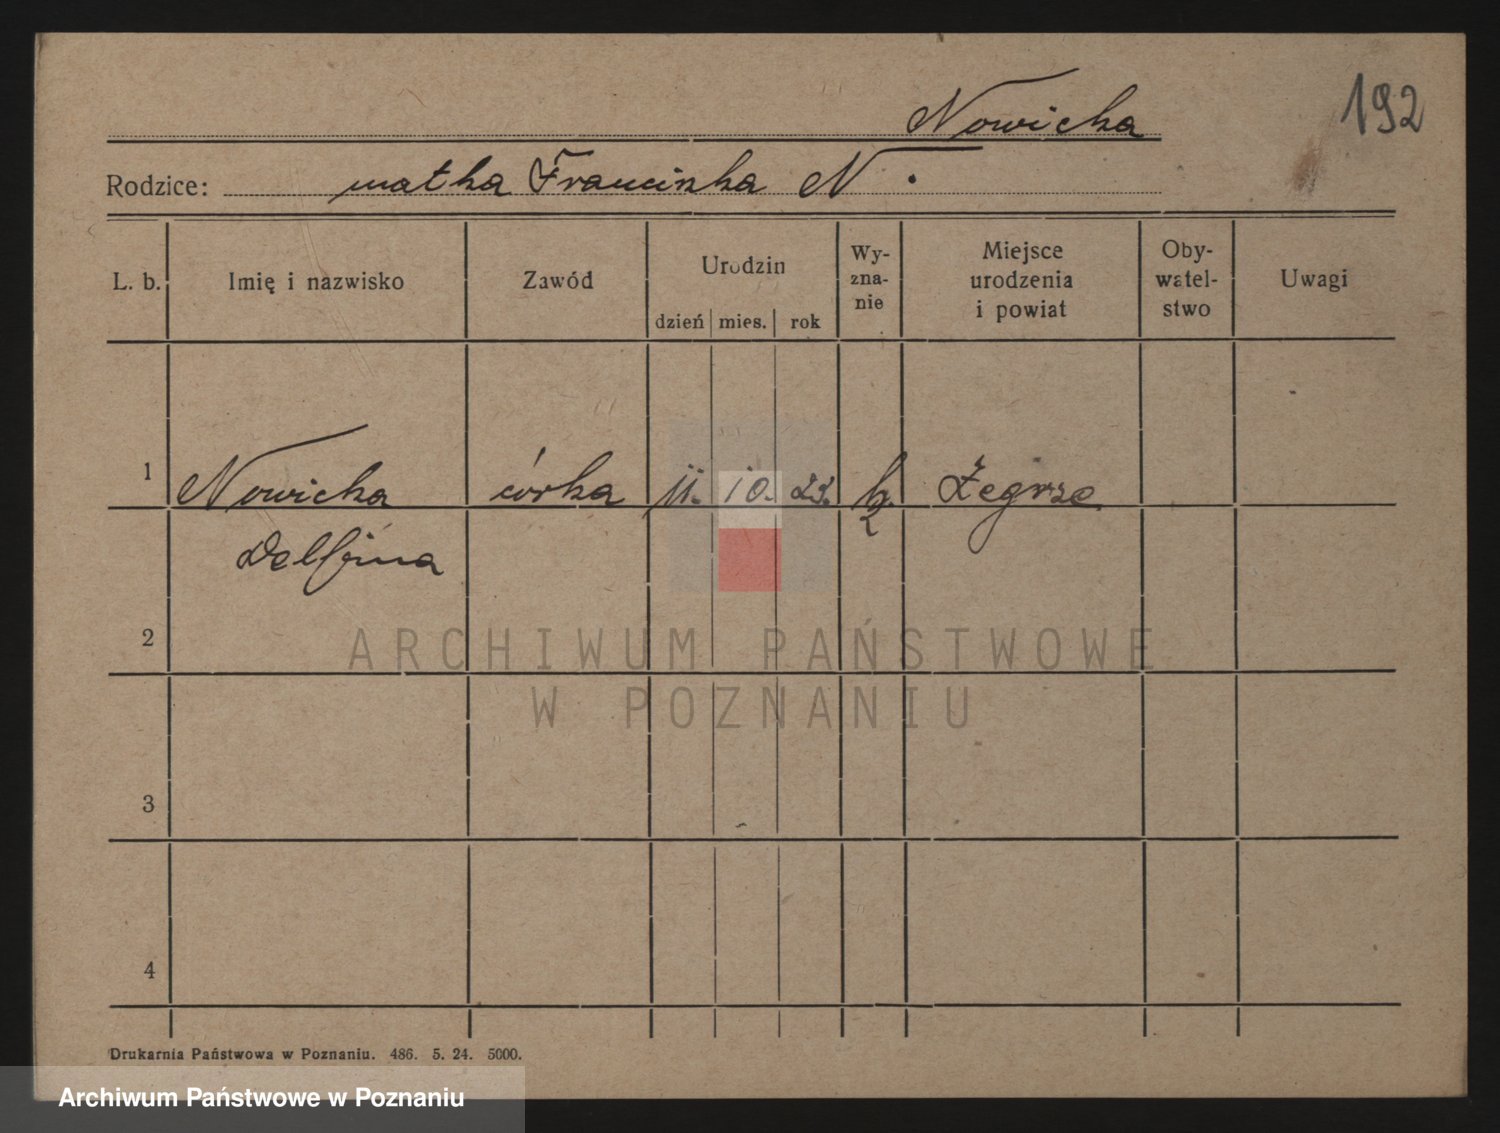 Nowicka
192
Rodzice: matka Franciszka N.
L. b.
Imię i nazwisko
Zawód
Urodzin
dzień mies. rok
Wy-
zna-
nie
Miejsce
urodzenia
i powiat
Oby-
watel-
stwo
Uwagi
1 Nowicka córka 11. 10. k. Żegrze
Delfina
2
3
4
ARCHIWUM PAŃSTWOWE
W POZNANIU
Drukarnia Państwowa w Poznaniu. 486. 5. 24. 5000.
Archiwum Państwowe w Poznaniu